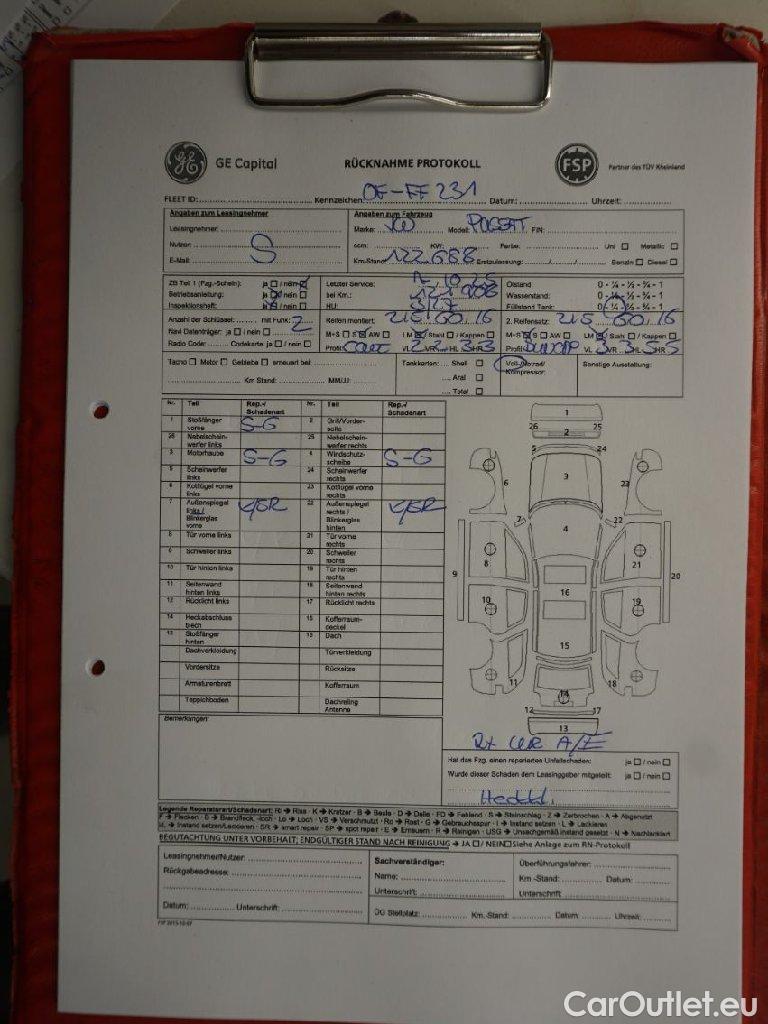 GE Capital RÜCKNAHME PROTOKOLL FSP Partner des TÜV Rheinland
FLEET ID: Kennzeichen: OF-FF 231 Datum: Uhrzeit:
Angaben zum Leasingnehmer Angaben zum Fahrzeug
Leasingnehmer: Marke: VW Model: PASSAT FIN:
Nutzer: S ccm: KW: Farbe: Uni Metallic
E-Mail: Km-Stand: 122.688 Erstzulassung: Benzin Diesel
ZB Teil 1 (Fzg.-Schein): ja / nein Letzter Service: Ölstand 0 - ¼ - ½ - ¾ - 1
Betriebsanleitung: ja / nein bei Km.: Wasserstand: 0 - ¼ - ½ - ¾ - 1
Inspektionsheft: ja / nein HU: Füllstand Tank: 0 - ¼ - ½ - ¾ - 1
Anzahl der Schlüssel: mit Funk: 2 Reifen montiert: 215 60 16 2. Reifensatz: 215 60 16
Navi Datenträger: ja / nein M+S S AW LM Stahl / Kappen M+S S AW LM Stahl / Kappen
Radio Code: Codekarte ja / nein Profil VL 2 VR 2 HL 3 HR 3 Profil DUNLOP VL 3 VR 3 HL 5 HR 5
Tacho Motor Getriebe erneuert bei: Tankkarten: Shell Voll-/Notrad/ Sonstige Ausstattung:
Km Stand: MM/JJ: Aral Kompressor:
Total
Nr. Teil Rep./ Schadenart Nr. Teil Rep./ Schadenart
1 Stoßfänger vorne S-G 2 Grill/Vorderseite
26 Nebelscheinwerfer links 25 Nebelscheinwerfer rechts
3 Motorhaube S-G 4 Windschutzscheibe S-G
5 Scheinwerfer links 24 Scheinwerfer rechts
6 Kotflügel vorne links 23 Kotflügel vorne rechts
7 Außenspiegel links / Blinkerglas vorne K/SR 22 Außenspiegel rechts / Blinkerglas hinten K/SR
8 Tür vorne links 21 Tür vorne rechts
9 Schweller links 20 Schweller rechts
10 Tür hinten links 19 Tür hinten rechts
11 Seitenwand hinten links 18 Seitenwand hinten rechts
12 Rücklicht links 17 Rücklicht rechts
14 Heckabschlussblech 15 Kofferraumdeckel
13 Stoßfänger hinten Dach
Dachverkleidung Türverkleidung
Vordersitze Rücksitze
Armaturenbrett Kofferraum
Teppichboden Dachreling Antenne
1
26 25
2
5 24
3
6 23
7 22
4
8 21
9 20
10 16 19
15
11 18
14
12 17
13
Bemerkungen:
A/E
Hat das Fzg. einen reparierten Unfallschaden: ja / nein
Wurde dieser Schaden dem Leasinggeber mitgeteilt: ja / nein
Legende Reparaturart/Schadenart: Ri → Riss - K → Kratzer - B → Beule - D → Delle - FD → Fehlend - S → Steinschlag - Z → Zerbrochen - A → Abgenutzt
BEGUTACHTUNG UNTER VORBEHALT; ENDGÜLTIGER STAND NACH REINIGUNG → JA / NEIN Siehe Anlage zum RN-Protokoll
Leasingnehmer/Nutzer: Sachverständiger: Überführungsfahrer:
Rückgabeadresse: Name: Km-Stand: Datum:
Unterschrift: Unterschrift
Datum: Unterschrift: DG Stellplatz: Km.-Stand: Datum Uhrzeit:
CarOutlet.eu